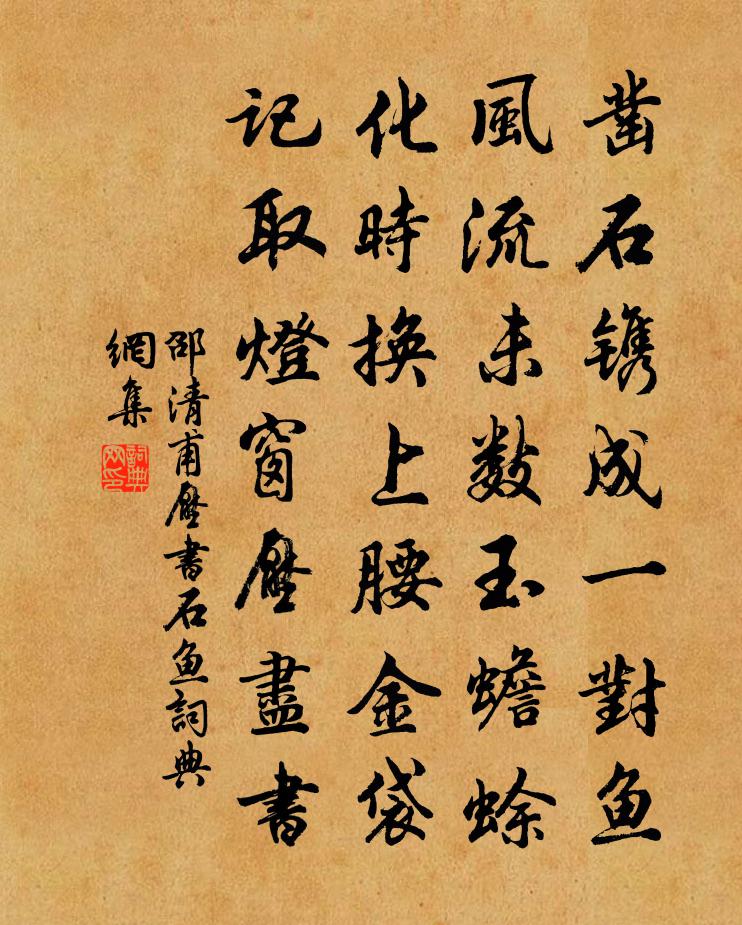 凿石镌成一對鱼
風流未数玉蟾蜍
化時换上腰金袋
记取燈窗壓盡書
邵清甫壓書石鱼詞典
網集
詞典
网印